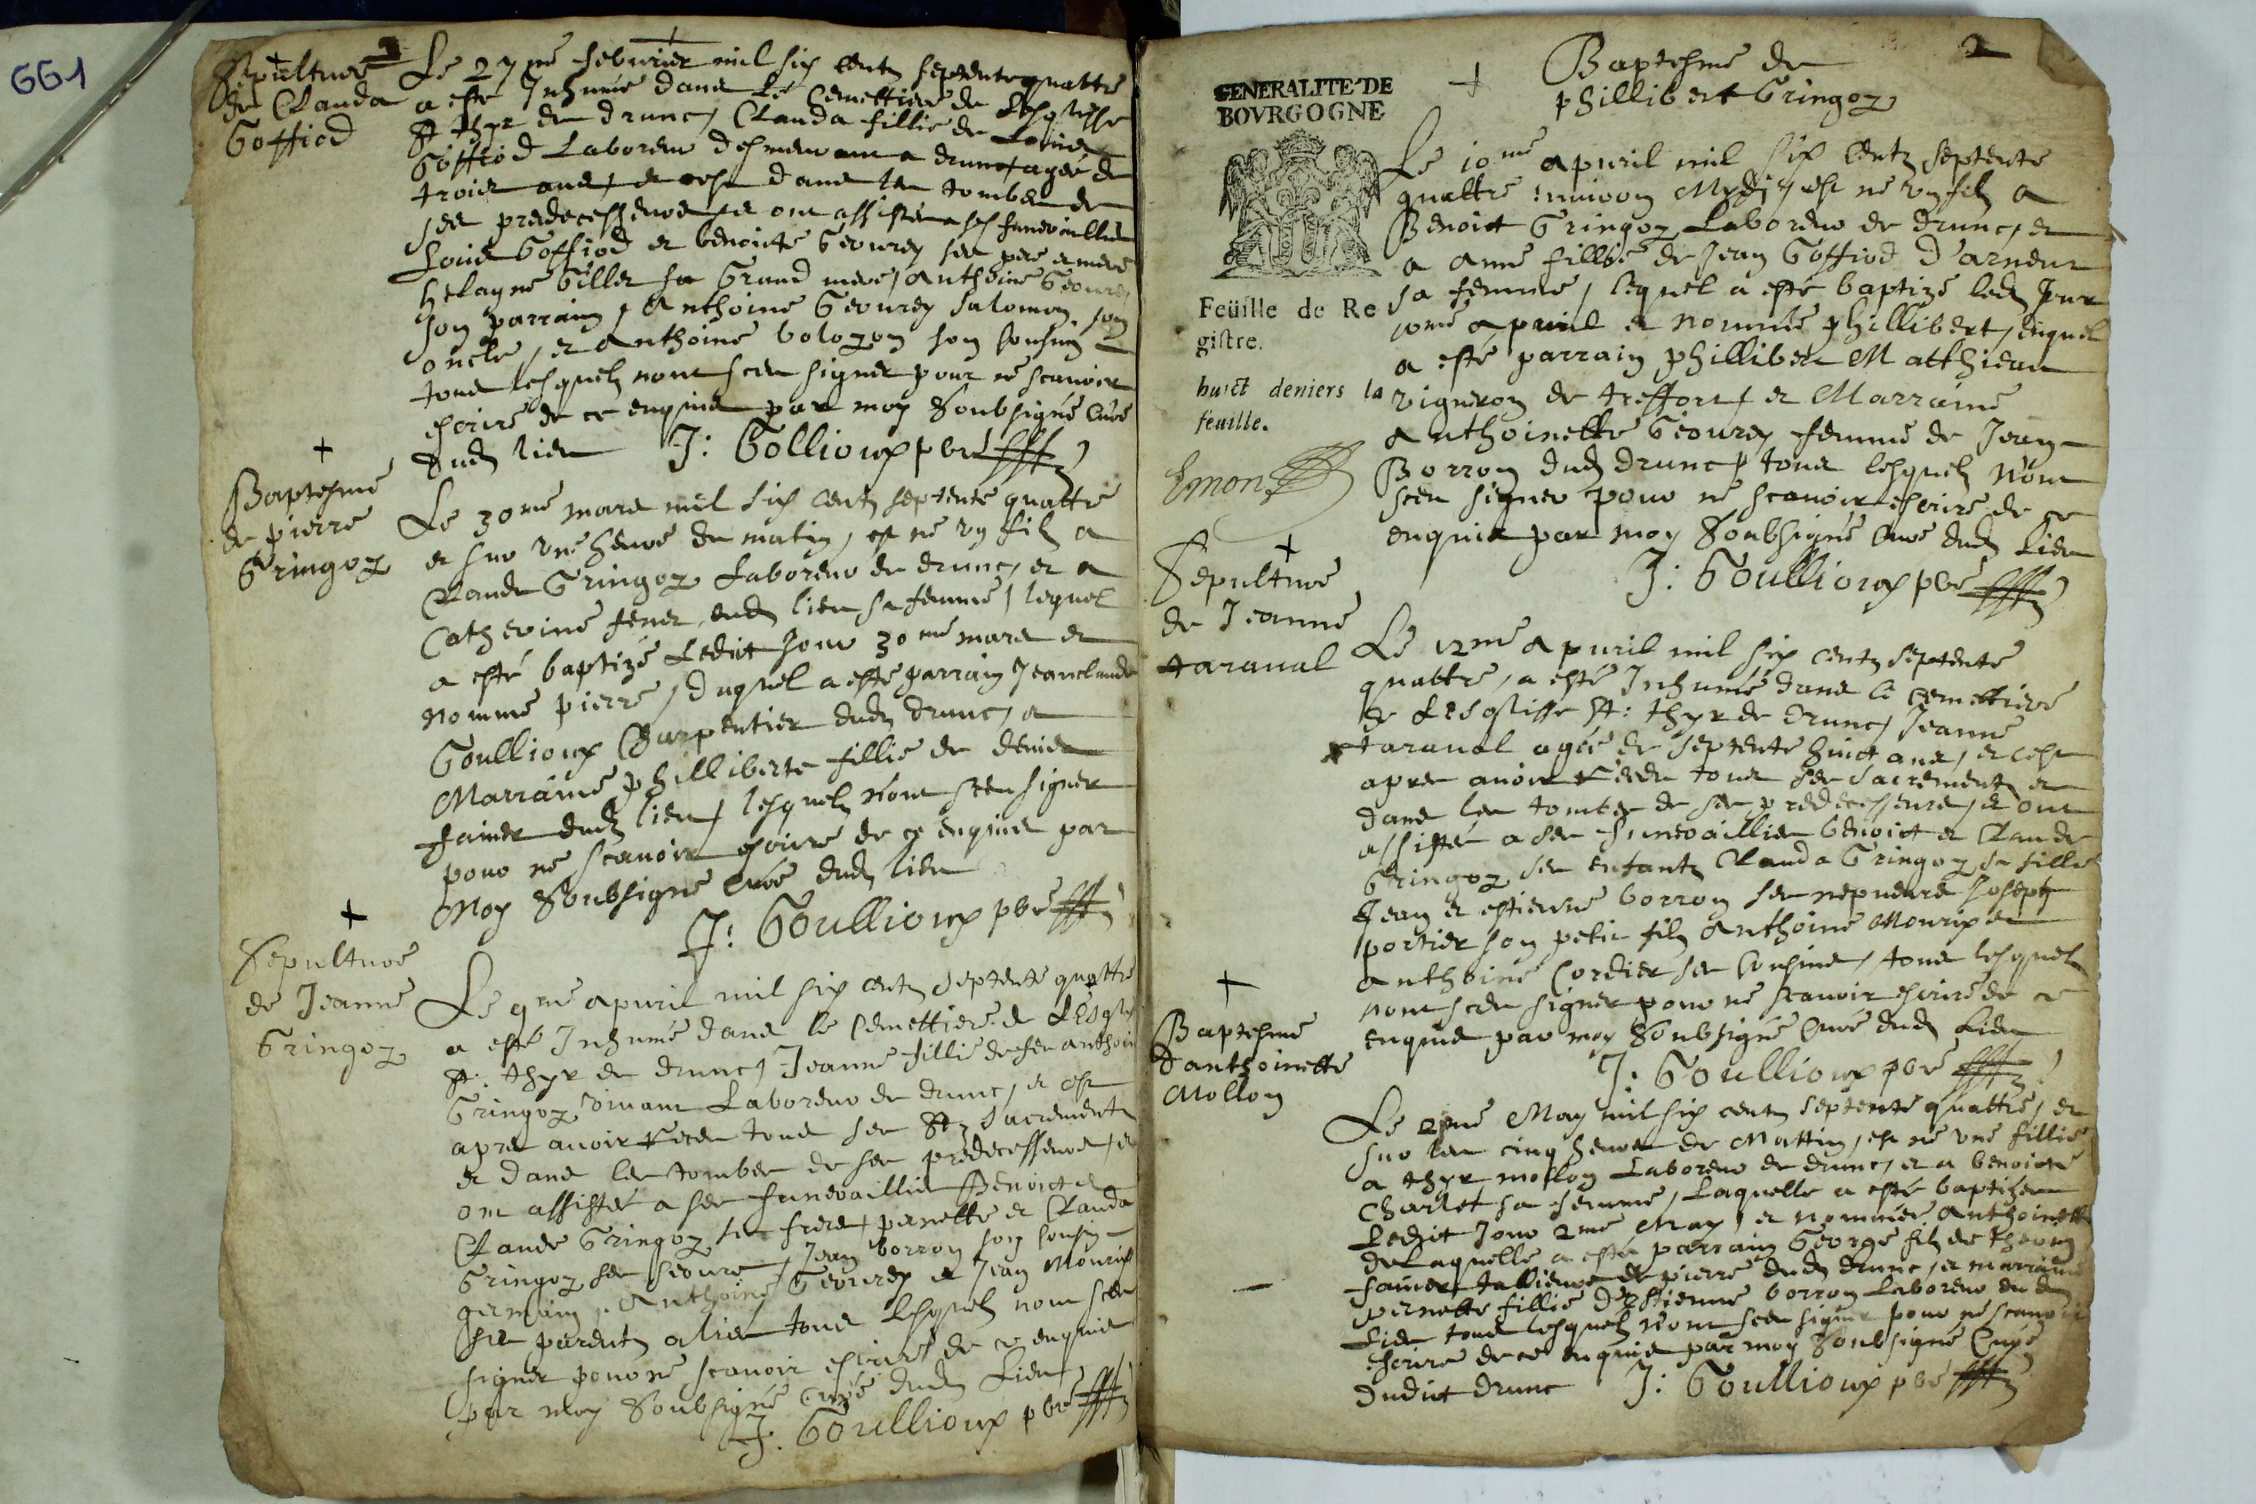 661
Sepulture
de Clauda
Goffiod
Le 27me feburier mil six centz septente quattre
a esté Inhumé dans le Cemettiere de Lesglisse
St thyr de drunc, Clauda fillie de Louis
Goffiod Laboreur demeurant a drunc, agée de
trois ans, et cest dans les tombes de
ses predecesseurs, et ont assistés a ses funerailles
Louis Goffiod et benoiste Geourey ses pere et mere
helayne Gillet sa Grand mere, Anthoine Geourey
son parrain, Anthoine Geourey salomon son
oncle, et Anthoine bolozon son Cousin
tous lesquelz nont sceu signer pour ne scauoir
escrire de ce enquis par moy Soubsigné Curé
dudt lieu J: Gollioux pbre
Baptesme
de pierre
Gringoz
Le 30me mars mil six centz septente quattre
et sur une heure du matin, est né un filz a
Claude Gringoz Laboreur de drunc, et a
Catherine fener dudt lieu sa femme, lequel
a esté baptizé Ledict Jour 30me mars et
nommé pierre, duquel a esté parrain Jeanclaude
Goullioux Charpentier dudt drunc, et
Marraine phillibette fillie de denis
fainer dudt lieu, lesquelz nont sceu signer
pour ne scauoir escrire de ce enquis par
Moy Soubsigné Curé dudt lieu
J: Goullioux pbre
Sepulture
de Jeanne
Gringoz
Le 9me apuril mil six centz septente quattre
a esté Inhumé dans le Cemettiere de Lesglis
St: thyr de drunc, Jeanne fillie de feu anthoi
Gringoz viuant Laboreur de drunc, et cest
apres auoir receu tous ses Stz Sacrements
et dans les tombes de ses predecesseurs, et
ont assistés a ses funerailles Benoict et
Claude Gringoz ses freres, pernette et Clauda
Gringoz ses seours, Jean borron son Cousin
germain, Anthoine Geourey et Jean Mourix
ses parentz alies tous lesquelz nont sceu
signer pour ne scauoir escrire de ce enquis
par Moy Soubsigné Curé dudt Lieu
J: Goullioux pbre
2
GENERALITE DE
BOVRGOGNE
Feüille de Re
gistre.
huict deniers la
feuille.
Emon
Baptesme de
phillibert Gringoz
Le 10me apuril mil six centz septente
quattre enuiron Mydi, est né un filz a
Benoict Gringoz Laboreur de drunc, et
a anne fillie de Jean Goffiod d'arneur
sa femme, lequel a esté baptizé ledt Jour
10me apuril et nommé phillibert, duquel
a esté parrain phillibert Matthieu
vigneron de treffort, et Marraine
Anthoinette Geourey femme de Jean
Borron dudt drunc, tous lesquelz Nont
sceu signer pour ne scauoir escrire de ce
enquis par moy Soubsigné Curé dudt Lieu
J: Goullioux pbre
Sepulture
de Jeanne
taraual
Le 12me apuril mil six centz septente
quattre, a esté Inhumé dans le Cemettiere
de Lesglisse St: thyr de drunc, Jeanne
taraual agée de septente huict ans, et cest
apres auoir receu tous ses sacrements et
dans les tombes de ses predecesseurs, et ont
assistés a ses funerailles benoict et Claude
Gringoz ses enfantz Clauda Gringoz sa fille
Jean et estienne borron ses nepueurs Joseph
portier son petit filz Anthoine Mourix et
anthoine Cordier ses Cousins, tous lesquelz
nont sceu signer pour ne scauoir escrire de ce
enquis par moy Soubsigné Curé dudt Lieu
J: Goullioux pbre
Baptesme
danthoinette
Mollon
Le 2me May mil six centz septente quattre, et
sur les cinq heures de Mattin, est né une fillie
a thyr mollon Laboreur de drunc, et a benoicte
Charlet sa femme, Laquelle a esté baptisée
Ledict Jour 2me May, et nommée Anthoinette
de Laquelle a esté parrain George filz de
fainer tallieur de pierre dudt drunc, et marraine
pernette fillie d'Estienne borron Laboreur dudt
Lieu tous lesquelz Nont sceu signer pour ne scauoir
escrire de ce enquis par moy Soubsigné Curé
dudict drunc J: Goullioux pbre